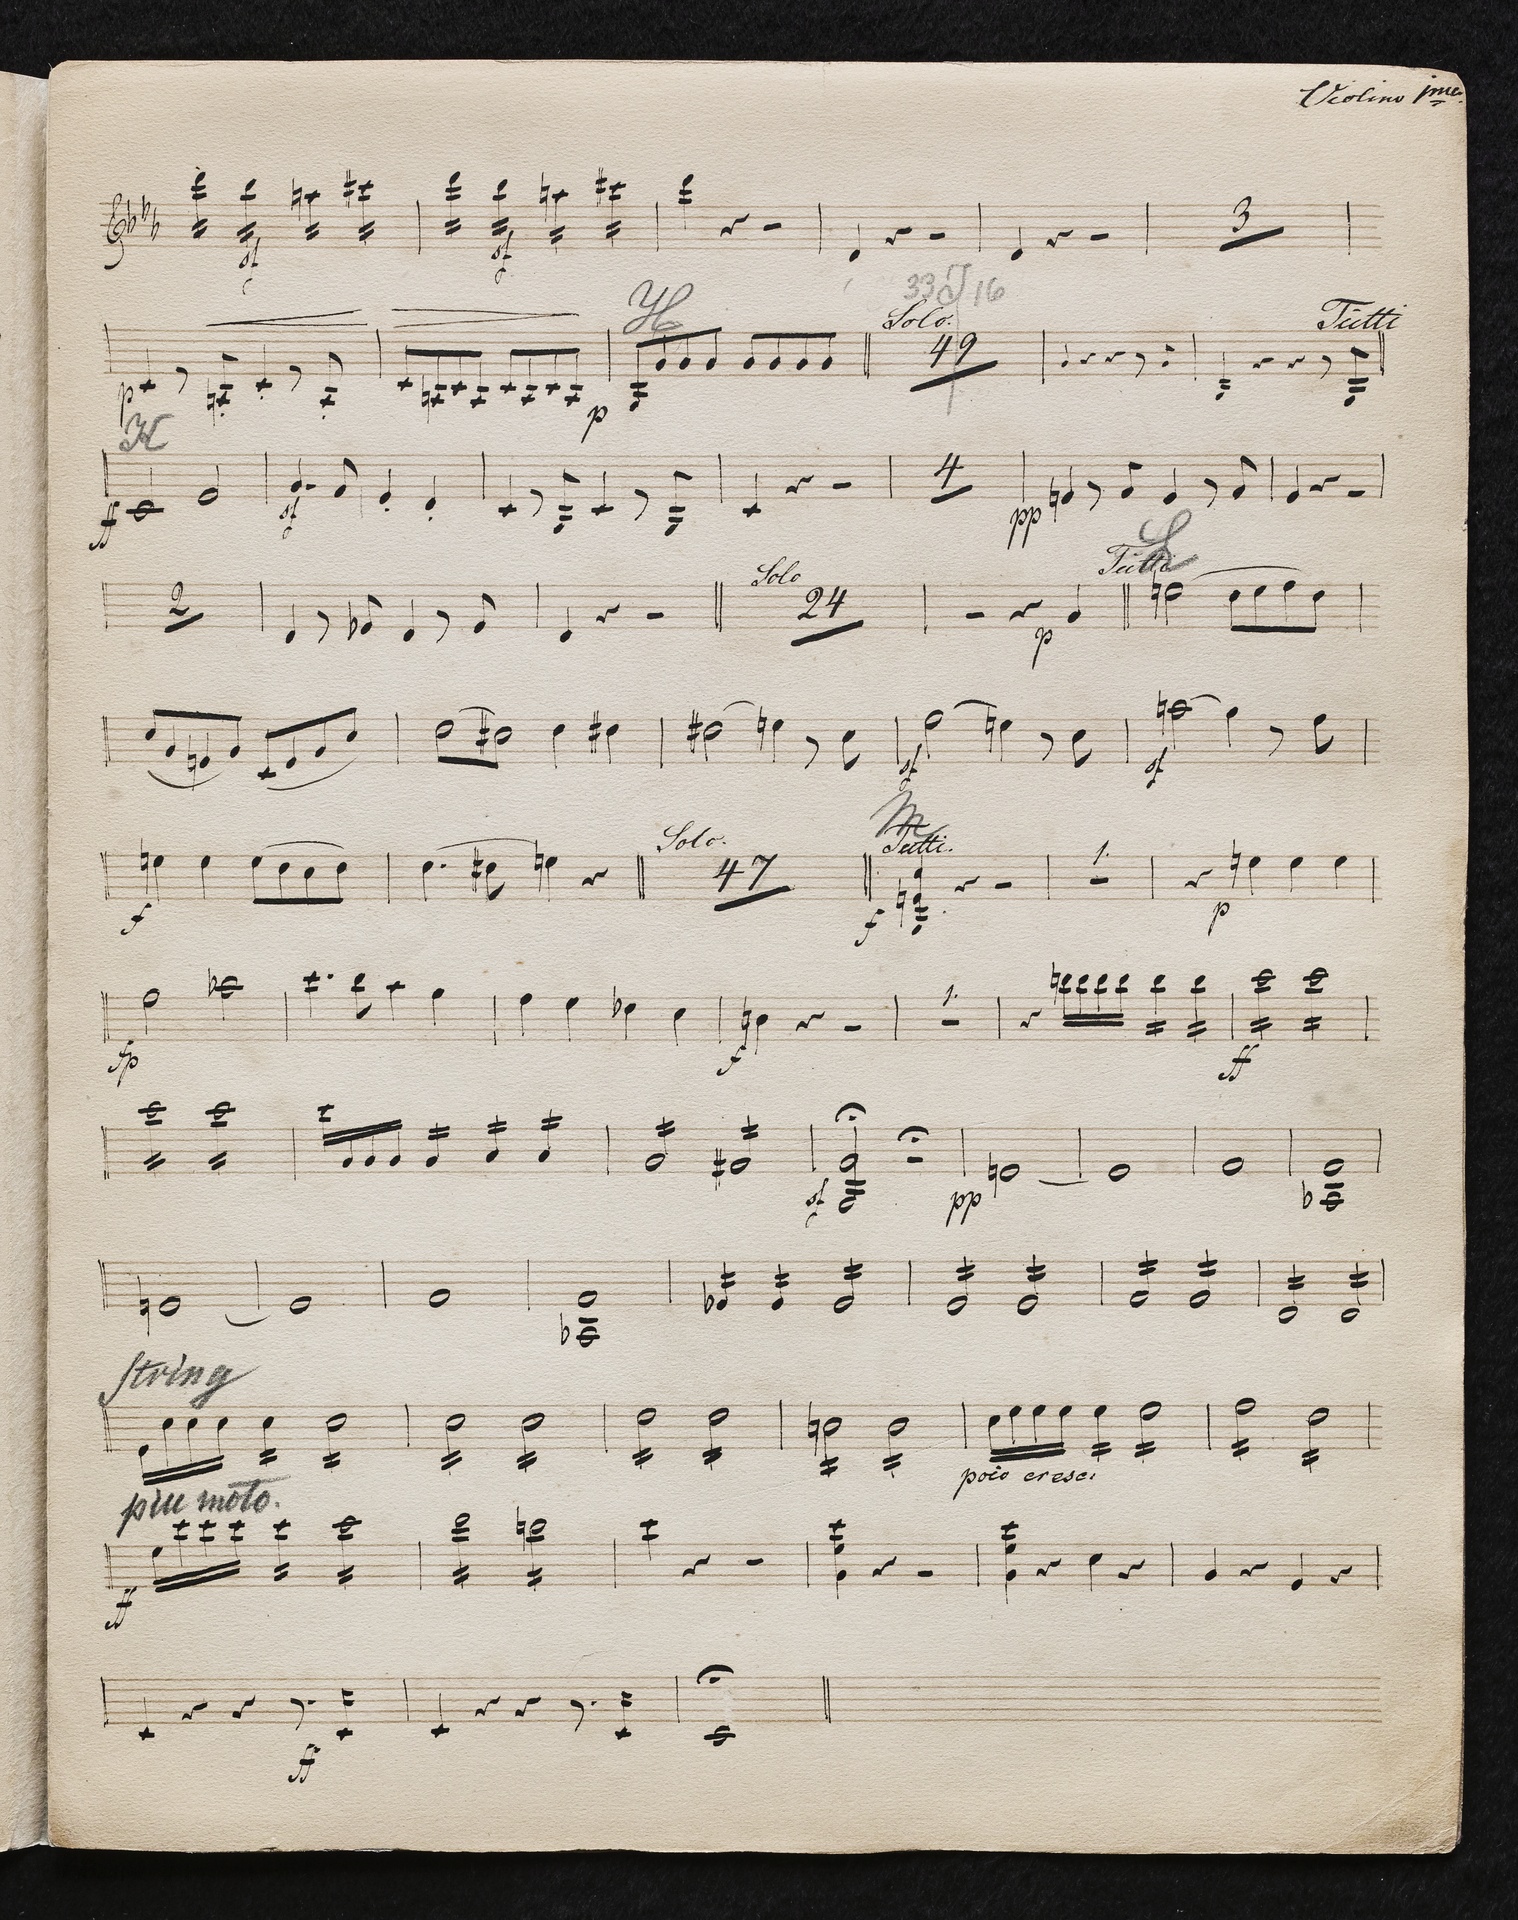 Violino jme.
sf sf 3
H 33 J 16
Solo. Tutti
p p 49
K
ff sf 4 pp
Solo Tutti L
2 24 p
sf sf
Solo. M Tutti.
f 47 f 1. p
sp f 1. ff
sf pp
String
poco cresc:
piu moto.
ff
ff